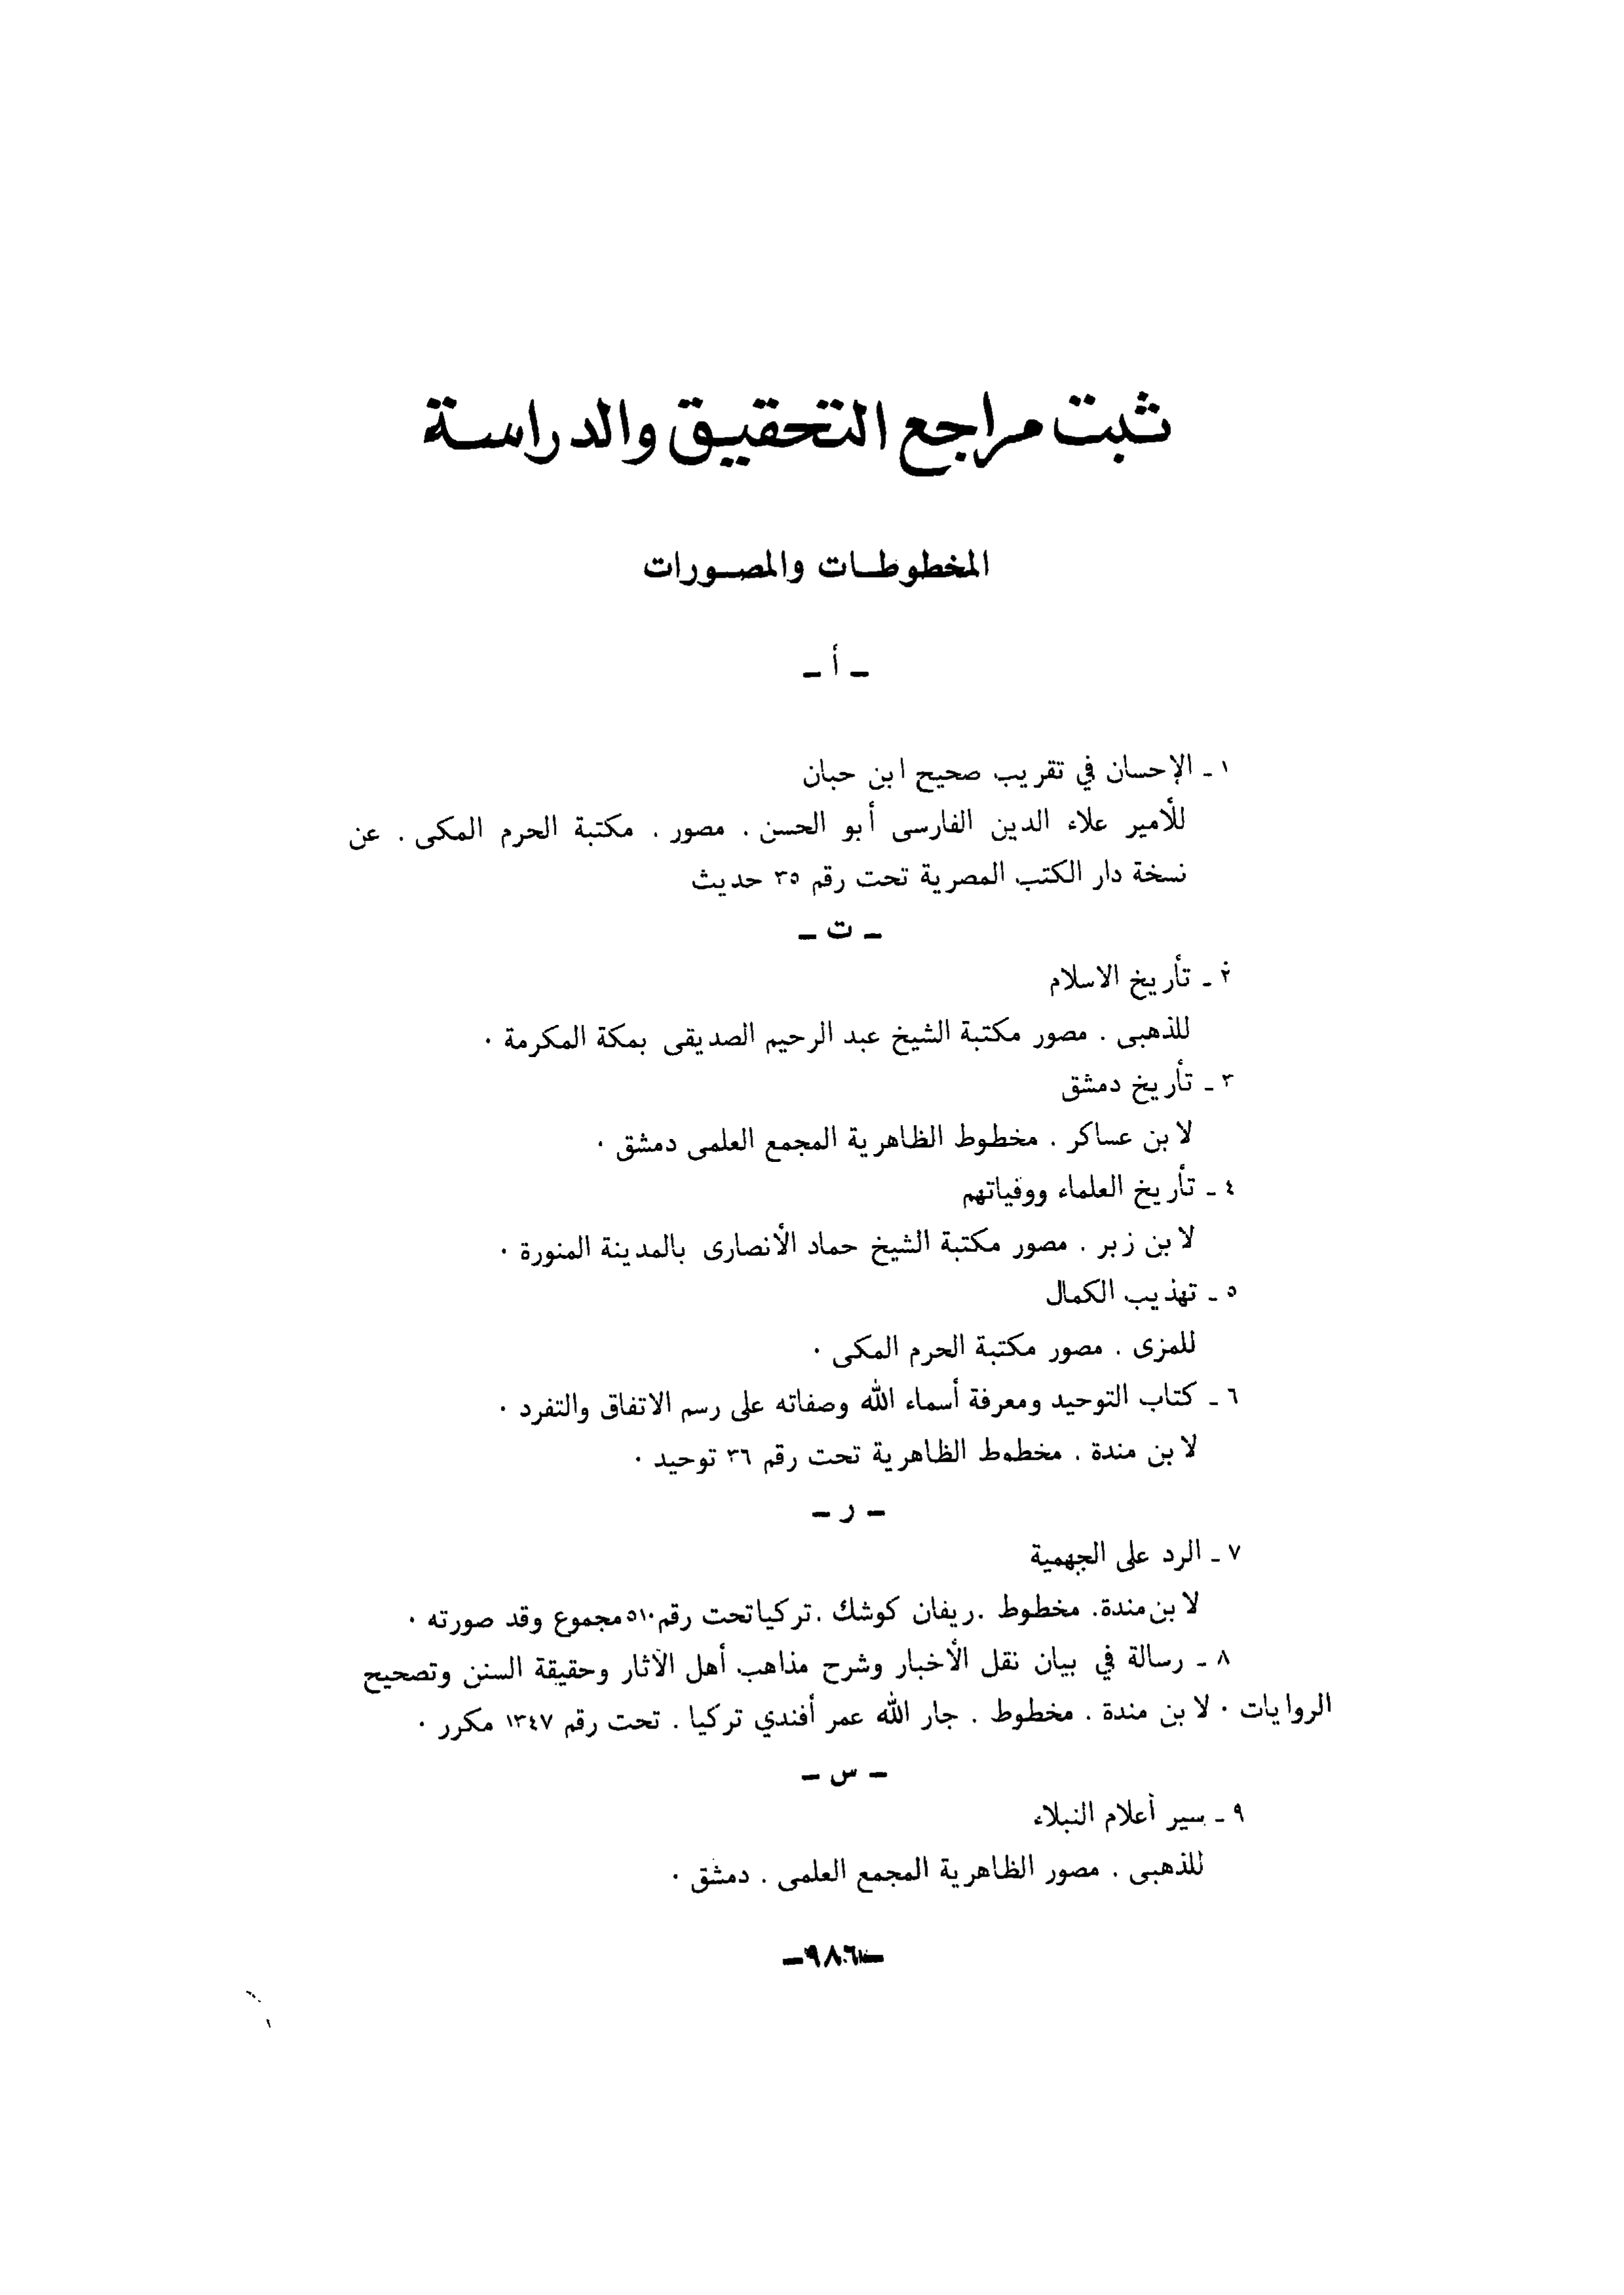 ثبت مراجع التحقيق والدراسة
المخطوطات والمصورات
ـ أ ـ
١ ـ الإحسان في تقريب صحيح ابن حبان
للأمير علاء الدين الفارسى أبو الحسن . مصور . مكتبة الحرم المكى . عن
نسخة دار الكتب المصرية تحت رقم ٣٥ حديث
ـ ت ـ
٢ ـ تأريخ الاسلام
للذهبى . مصور مكتبة الشيخ عبد الرحيم الصديقى بمكة المكرمة .
٣ ـ تأريخ دمشق
لابن عساكر . مخطوط الظاهرية المجمع العلمى دمشق .
٤ ـ تأريخ العلماء ووفياتهم
لابن زبر . مصور مكتبة الشيخ حماد الأنصارى بالمدينة المنورة .
٥ ـ تهذيب الكمال
للمزى . مصور مكتبة الحرم المكى .
٦ ـ كتاب التوحيد ومعرفة أسماء الله وصفاته على رسم الاتفاق والتفرد .
لابن مندة . مخطوط الظاهرية تحت رقم ٣٦ توحيد .
ـ ر ـ
٧ ـ الرد على الجهمية
لابن مندة. مخطوط .ريفان كوشك .تركيا تحت رقم ٥١٠ مجموع وقد صورته .
٨ ـ رسالة في بيان نقل الأخبار وشرح مذاهب أهل الآثار وحقيقة السنن وتصحيح
الروايات . لابن مندة . مخطوط . جار الله عمر أفندي تركيا . تحت رقم ١٣٤٧ مكرر .
ـ س ـ
٩ ـ سير أعلام النبلاء
للذهبى . مصور الظاهرية المجمع العلمى . دمشق .
ـ٩٨٦ـ